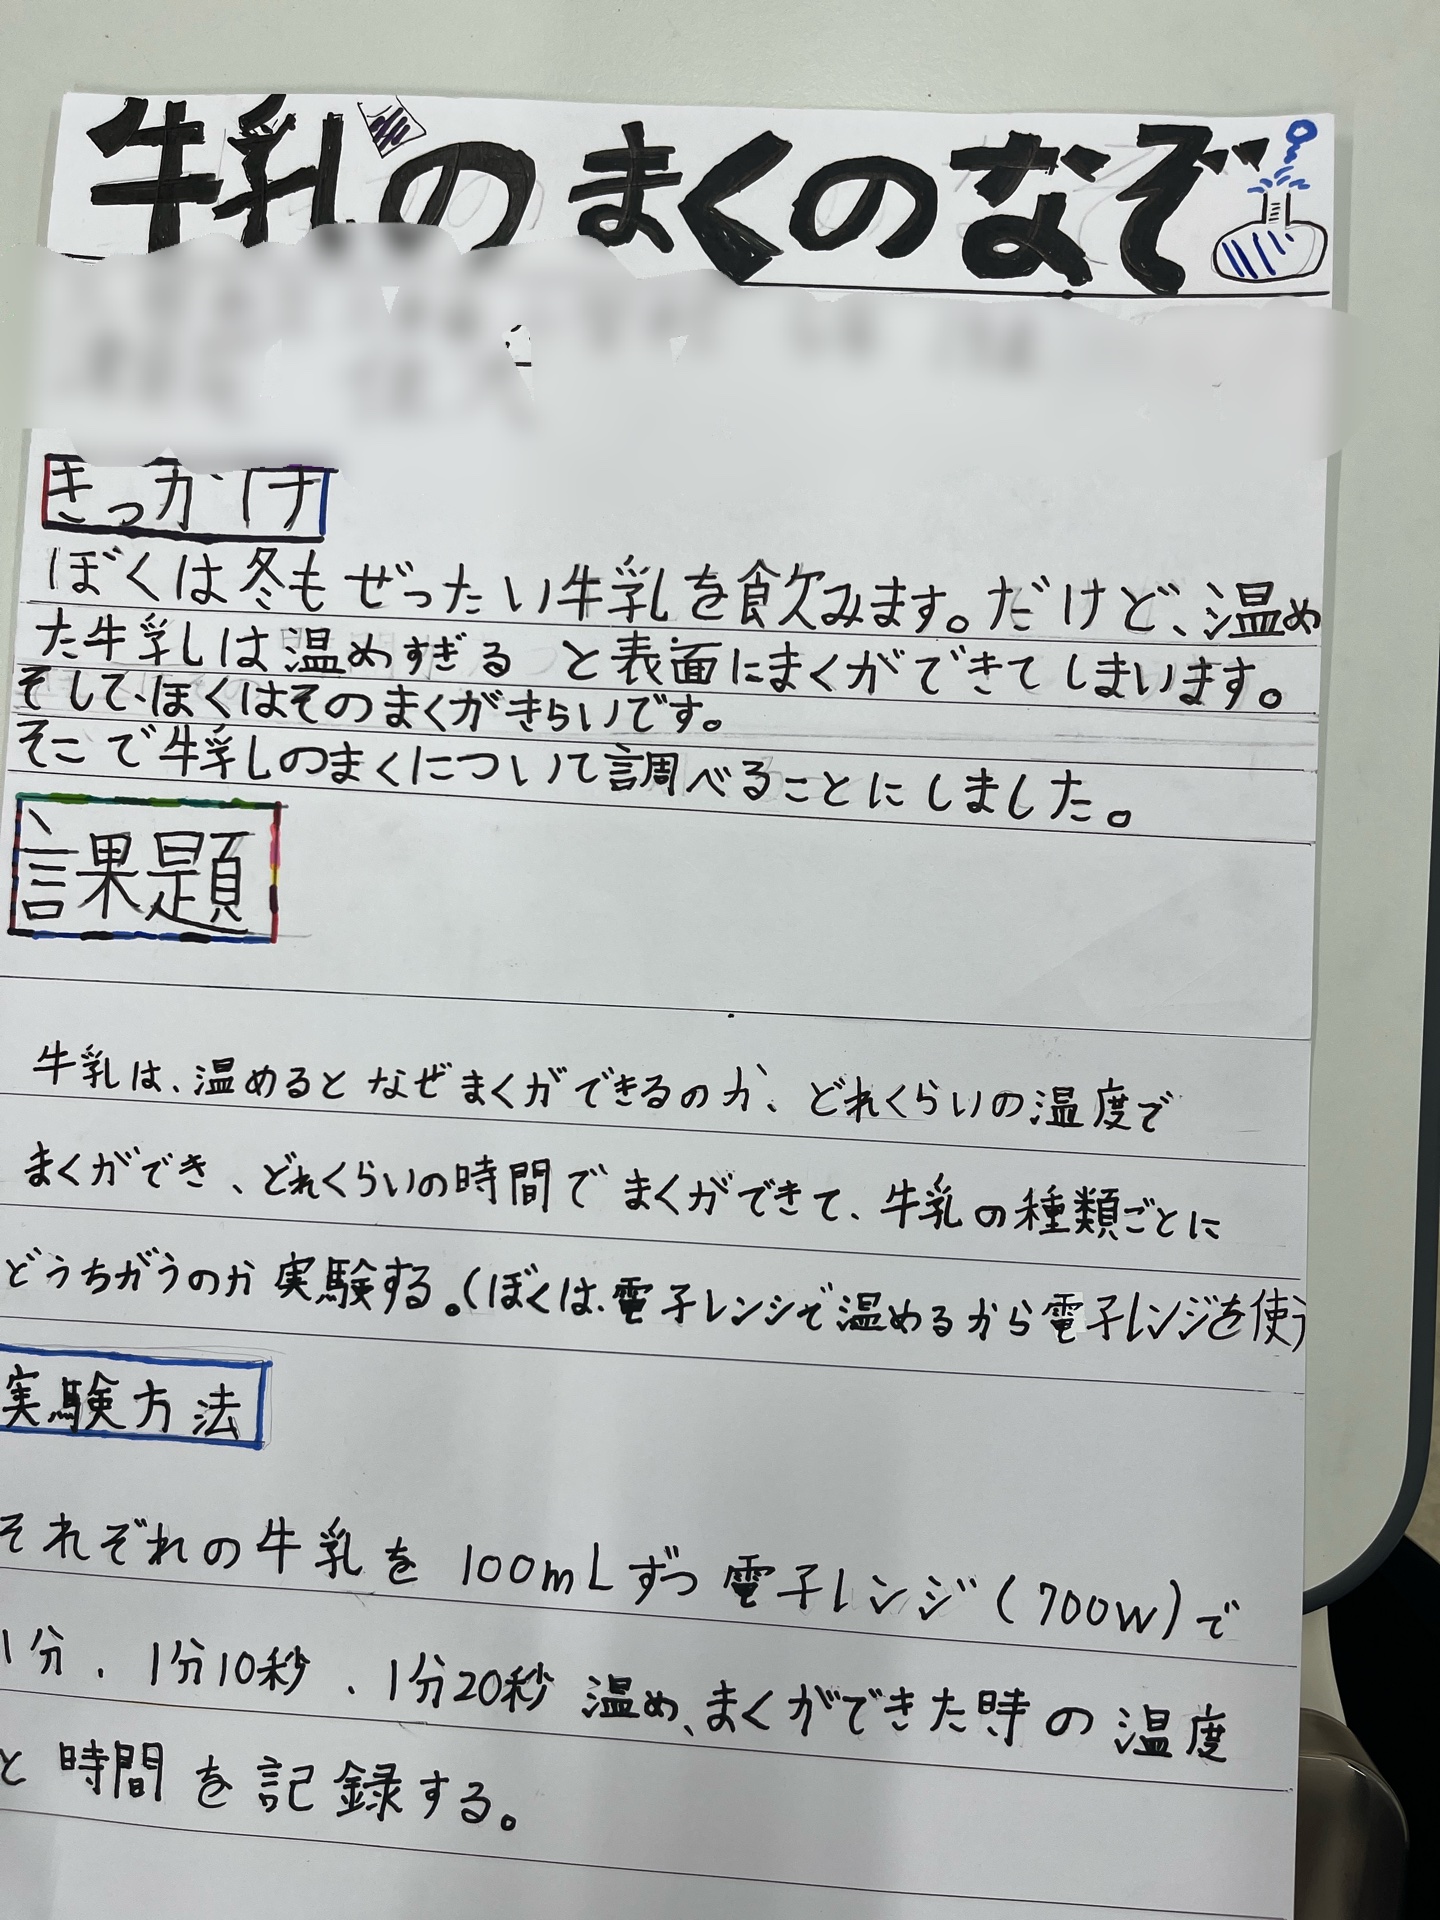 牛乳のまくのなぞ
きっかけ
ぼくは冬もぜったい牛乳を飲みます。だけど、温め
た牛乳しは温めすぎる と表面にまくができてしまいます。
そして、ぼくはそのまくがきらいです。
そこで牛乳しのまくについて調べることにしました。
課題
牛乳は、温めるとなぜまくができるのか、どれくらいの温度で
まくができ、どれくらいの時間でまくができて、牛乳の種類ごとに
どうちがうのか実験する。(ぼくは、電子レンジで温めるから電子レンジを使う
実験方法
それぞれの牛乳を100mLずつ電子レンジ(700W)で
1分、1分10秒、1分20秒 温め、まくができた時の温度
と時間を記録する。